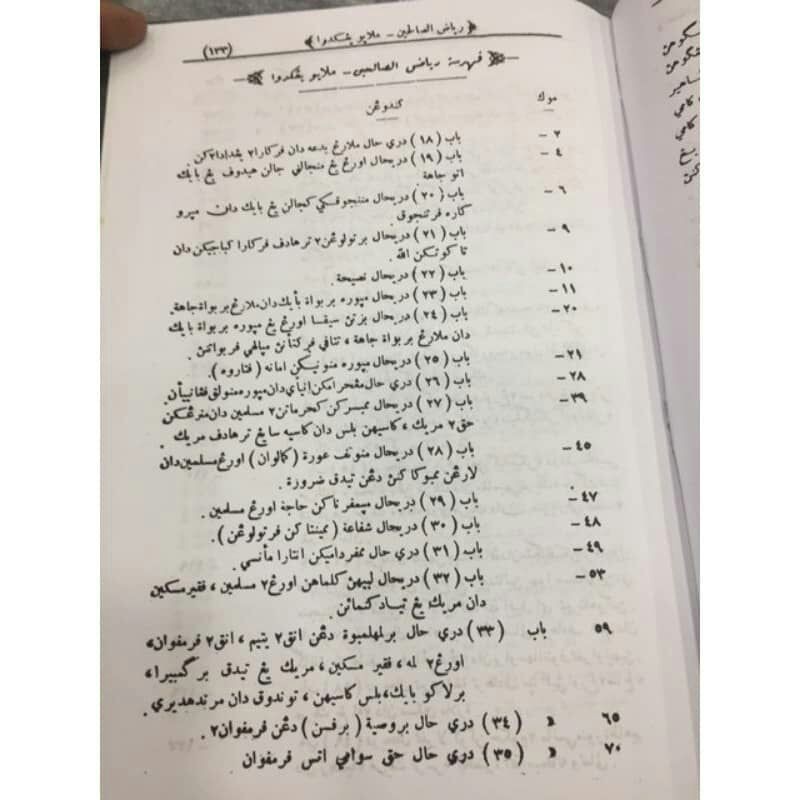 ﴿ رياض الصالحين – ملايو يڠكدوا ﴾
(١٣٣)
فهرسة رياض الصالحين – ملايو يڠكدوا
موك
كندوڠن
٢ – باب ( ١٨ ) دري حال ملارڠ بدعه دان فركارا٢ يڠدادا٢كن
٤ – باب ( ١٩ ) دريحال اورڠ يڠ منجالني جالن هيدوف يڠ بايك
اتو جاهة.
٦ – باب ( ٢٠ ) دريحال مننجوقكي كجالن يڠ بايك دان ميرو
كاره فرتنجوق.
٩ – باب ( ٢١ ) دريحال برتولوڠن٢ ترهادف فركارا كباجيكن دان
تاكوتكن الله.
١٠ – باب ( ٢٢ ) دريحال نصيحة.
١١ – باب ( ٢٣ ) دريحال مپوره بربواة بأيك دان ملارڠ بربواة جاهة.
٢٠ – باب ( ٢٤ ) دريحال بزتن سيقسا اورڠ يڠ مپوره بربواة بايك
دان ملارڠ بربواة جاهة، تتافي فركتأن مپالهي فربواتن.
٢١ – باب ( ٢٥ ) دريحال مپوره منونيكن امانه ( فتاروه ).
٢٨ – باب ( ٢٦ ) دري حال مڠحرامكن انيأي دان مپوره منولق فڠانييأن.
٣٩ – باب ( ٢٧ ) دريحال ممبسركن كحرماتن٢ مسلمين دان منرڠكن
حق٢ مريك، كاسيهن بلس دان كاسيه سايڠ ترهادف مريك.
٤٥ – باب ( ٢٨ ) دريحال منوتف عورة ( كمالوان ) اورڠ مسلمين دان
لارڠن ممبوكاكن دڠن تيدق ضرورة.
٤٧ – باب ( ٢٩ ) دريحال مپمفرناكن حاجة اورڠ مسلمين.
٤٨ – باب ( ٣٠ ) دريحال شفاعة ( ميمنتاكن فرتولوڠن ).
٤٩ – باب ( ٣١ ) دري حال ممفرداميكن انتارا مأنسي.
٥٣ – باب ( ٣٢ ) دريحال لبيهن كلماهن اورڠ٢ مسلمين، فقير مسكين
دان مريك يڠ تياد كنمائن.
٥٩ باب ( ٣٣ ) دري حال برلمهلمبوة دڠن انق٢ يتيم، انق٢ فرمفوان،
اورڠ٢ لمه، فقير مسكين، مريك يڠ تيدق برگمبيرا،
برلاكو بايك، بلس كاسيهن، توندوق دان مرندهديري.
٦٥ » ( ٣٤ ) دري حال بروصية ( برفسن ) دڠن فرمفوان٢.
٧٠ » ( ٣٥ ) دري حال حق سوامي اتس فرمفوان